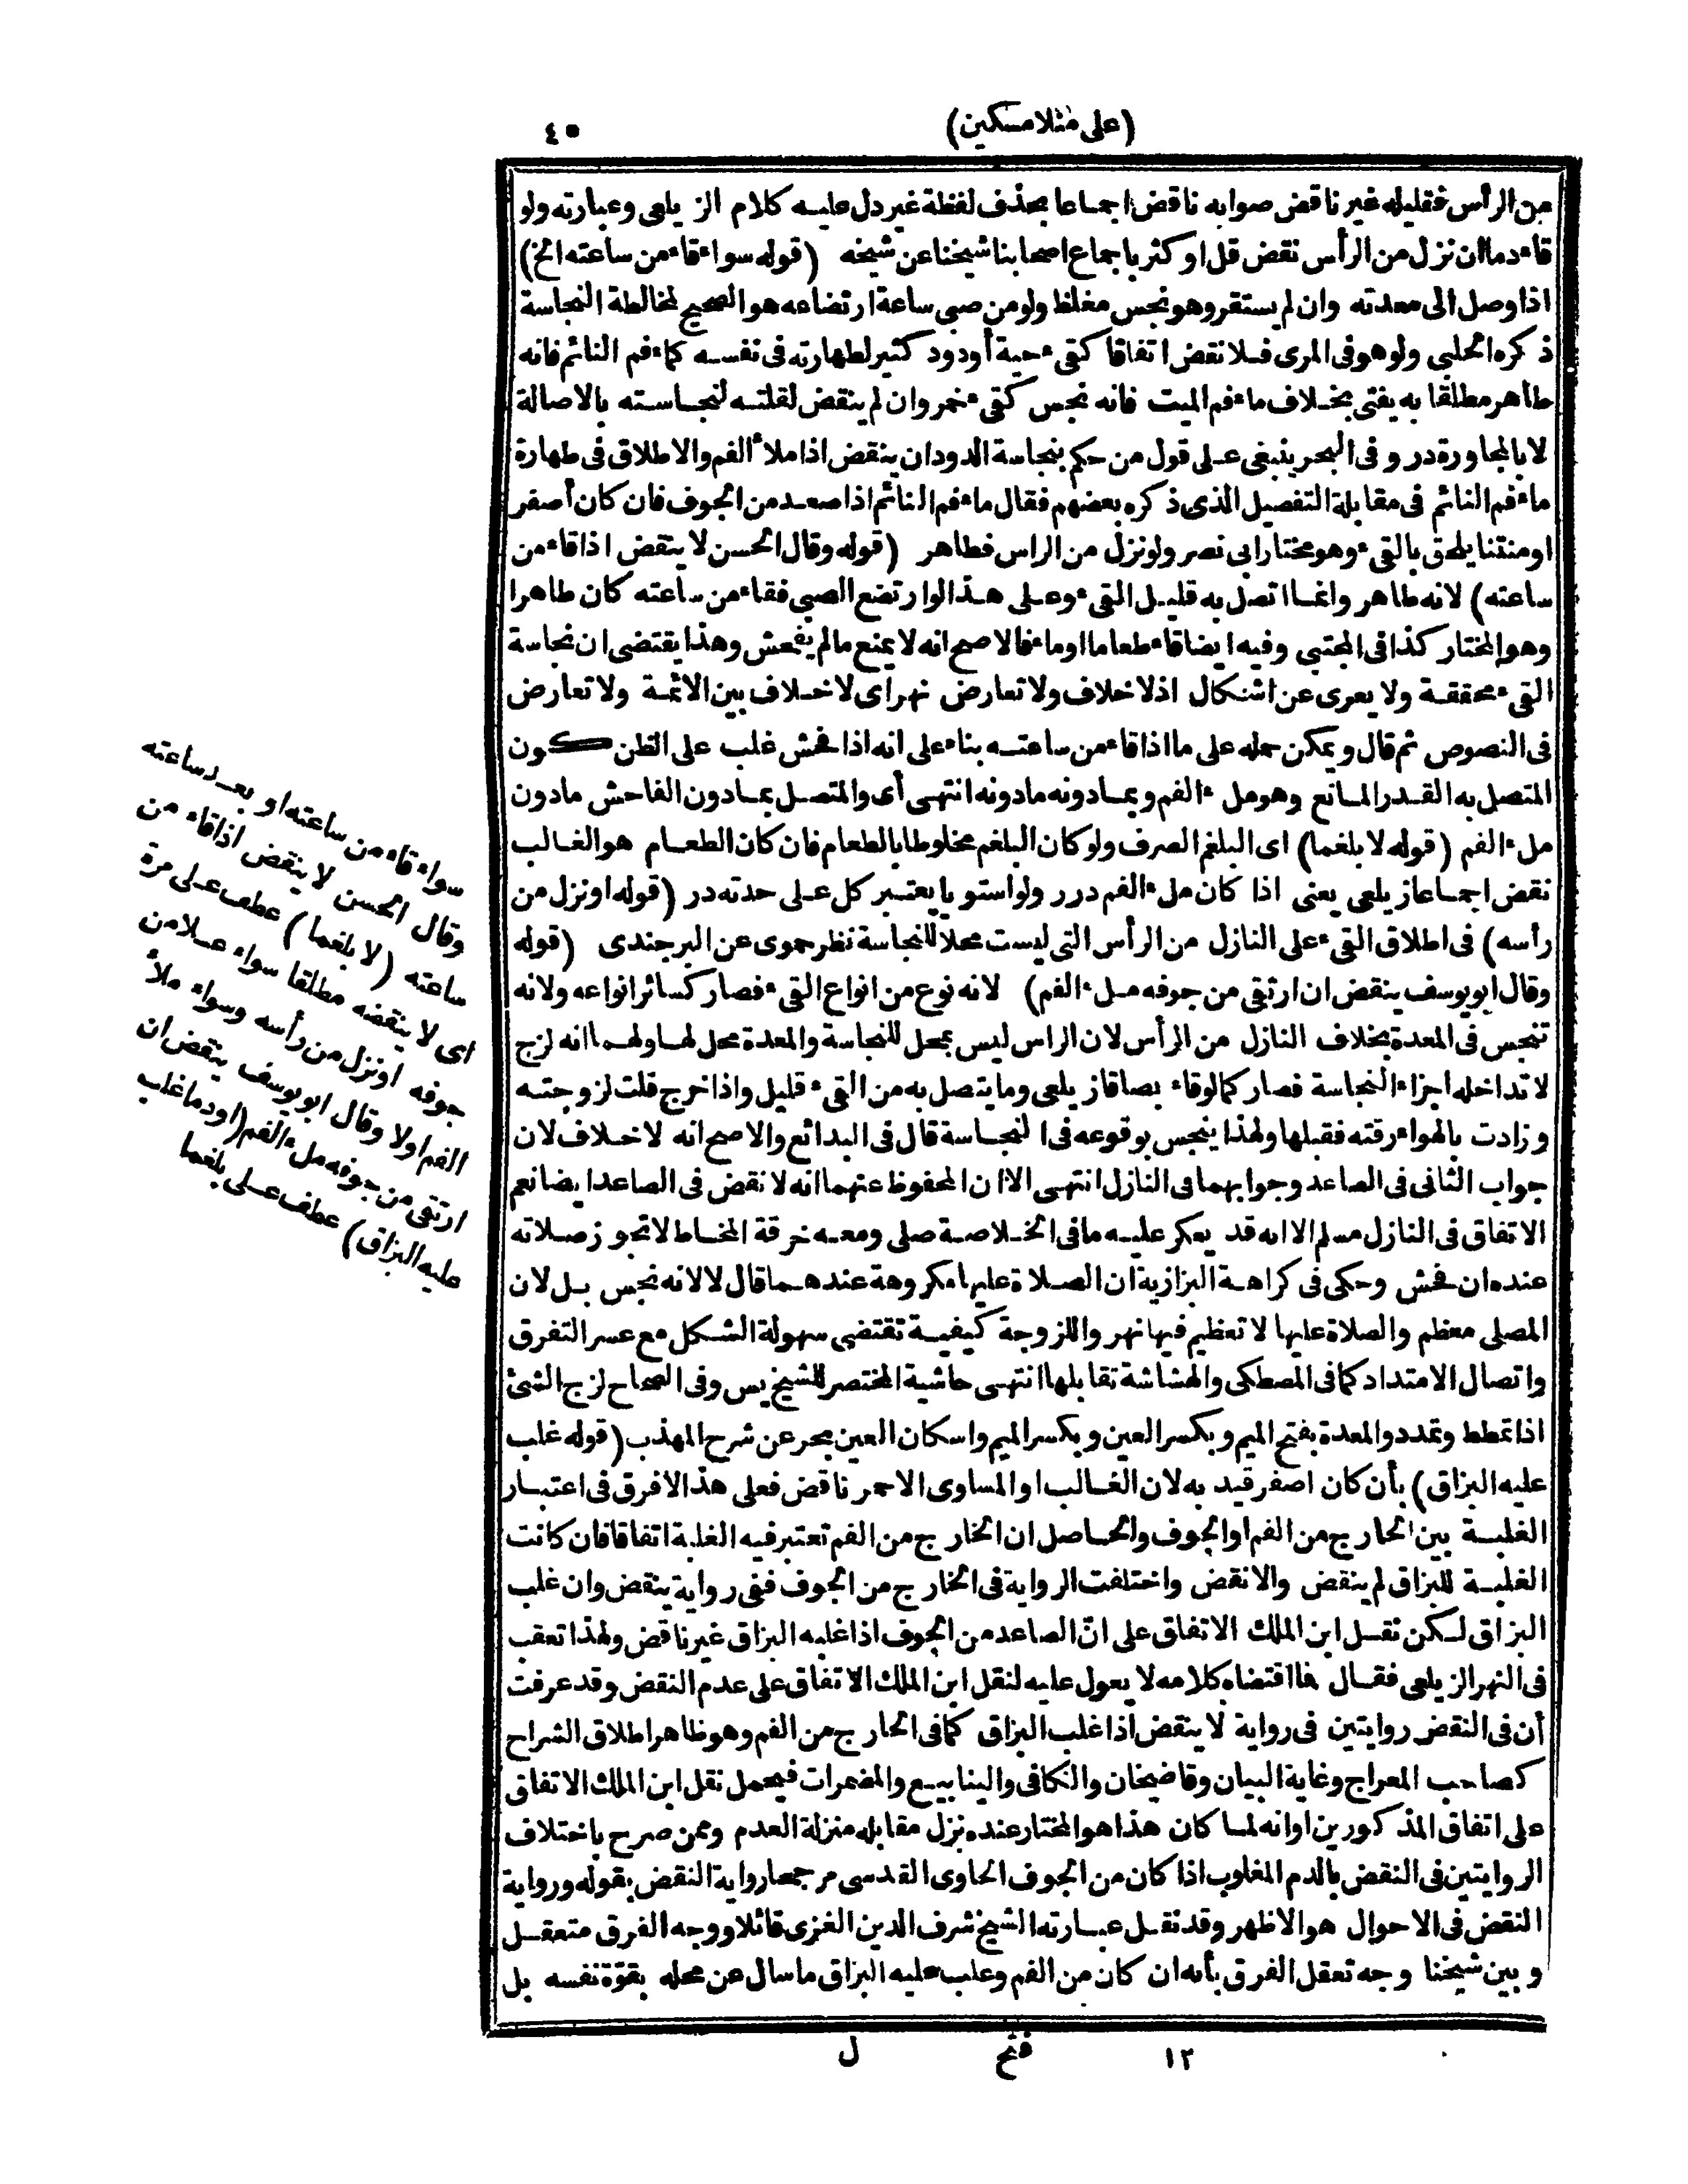 (على منلا مسكين)
٤٥
من الرأس فقليله غير ناقض صوابه ناقض اجماعا بحذف لفظة غير دل عليه كلام الزيلعى وعبارته ولو
قاء دما ان نزل من الرأس نقض قل او كثر باجماع اصحابنا شيخنا عن شيخه (قوله سواء قاء من ساعته الخ)
اذا وصل الى معدته وان لم يستقر وهو نجس مغلظ ولو من صبى ساعة ارتضاعه هو الصحيح لمخالطة النجاسة
ذكره الحلبى ولو هو فى المرى فلا نقض اتفاقا كقىء حية أو دود كثير لطهارته فى نفسه كماء فم النائم فانه
طاهر مطلقا به يفتى بخلاف ماء فم الميت فانه نجس كقىء خمر وان لم ينقض لقلته لنجاسته بالاصالة
لا بالمجاورة در وفى البحر ينبغى على قول من حكم بنجاسة الدود ان ينقض اذا ملأ الفم والاطلاق فى طهارة
ماء فم النائم فى مقابلة التفصيل الذى ذكره بعضهم فقال ماء فم النائم اذا صعد من الجوف فان كان أصفر
او منتنا يلحق بالقىء وهو مختار ابى نصر ولو نزل من الراس فطاهر (قوله وقال الحسن لا ينقض اذا قاء من
ساعته) لانه طاهر وانما اتصل به قليل القىء وعلى هذا لو ارتضع الصبى فقاء من ساعته كان طاهرا
وهو المختار كذا فى المجتبى وفيه ايضا قاء طعاما او ماء فالاصح انه لا يمنع ما لم يفحش وهذا يقتضى ان نجاسة
القىء مخففة ولا يعرى عن اشكال اذ لا خلاف ولا تعارض نهر اى لا خلاف بين الائمة ولا تعارض
فى النصوص ثم قال ويمكن حمله على ما اذا قاء من ساعته بناء على انه اذا فحش غلب على الظن كون
المتصل به القدر المانع وهو ملء الفم وبما دونه ما دونه انتهى أى والمتصل بما دون الفاحش ما دون
ملء الفم (قوله لا بلغما) اى البلغم الصرف ولو كان البلغم مخلوطا بالطعام فان كان الطعام هو الغالب
نقض اجماعا زيلعى يعنى اذا كان ملء الفم درر ولو استويا يعتبر كل على حدته در (قوله او نزل من
رأسه) فى اطلاق القىء على النازل من الرأس التى ليست محلا للنجاسة نظر حموى عن البرجندى (قوله
وقال ابو يوسف ينقض ان ارتقى من جوفه ملء الفم) لانه نوع من انواع القىء فصار كسائر انواعه ولانه
تنجس فى المعدة بخلاف النازل من الرأس لان الراس ليس بمحل للنجاسة والمعدة محل لها ولهما انه لزج
لا تداخله اجزاء النجاسة فصار كما لو قاء بصاقا زيلعى وما يتصل به من القىء قليل واذا خرج قلت لزوجته
وزادت بالهواء رقته فقبلها ولهذا ينجس بوقوعه فى النجاسة قال فى البدائع والاصح انه لا خلاف لان
جواب الثانى فى الصاعد وجوابهما فى النازل انتهى الا ان المحفوظ عنهما انه لا نقض فى الصاعد ايضا نعم
الاتفاق فى النازل مسلم الا انه قد يعكر عليه ما فى الخلاصة صلى ومعه خرقة المخاط لا تجوز صلاته
عنده ان فحش وحكى فى كراهة البزازية ان الصلاة عليها مكروهة عندهما قال لا لانه نجس بل لان
المصلى معظم والصلاة عليها لا تعظيم فيها نهر واللزوجة كيفية تقتضى سهولة الشكل مع عسر التفرق
واتصال الامتداد كما فى المصطكى والهشاشة تقابلها انتهى حاشية المختصر للشيخ يس وفى الصحاح لزج الشئ
اذا تمطط وتمدد والمعدة بفتح الميم وبكسر العين وبكسر الميم واسكان العين بحر عن شرح المهذب (قوله غلب
عليه البزاق) بأن كان اصفر قيد به لان الغالب او المساوى الاحمر ناقض فعلى هذا لا فرق فى اعتبار
الغلبة بين الخارج من الفم او الجوف والحاصل ان الخارج من الفم تعتبر فيه الغلبة اتفاقا فان كانت
الغلبة للبزاق لم ينقض والا نقض واختلفت الرواية فى الخارج من الجوف ففى رواية ينقض وان غلب
البزاق لكن نقل ابن الملك الاتفاق على انّ الصاعد من الجوف اذا غلبه البزاق غير ناقض ولهذا تعقب
فى النهر الزيلعى فقال فما اقتضاه كلامه لا يعول عليه لنقل ابن الملك الاتفاق على عدم النقض وقد عرفت
أن فى النقض روايتين فى رواية لا ينقض اذا غلب البزاق كما فى الخارج من الفم وهو ظاهر اطلاق الشراح
كصاحب المعراج وغاية البيان وقاضيخان والكافى والينابيع والمضمرات فيحمل نقل ابن الملك الاتفاق
على اتفاق المذكورين او انه لما كان هذا هو المختار عنده نزل مقابله منزلة العدم وممن صرح باختلاف
الروايتين فى النقض بالدم المغلوب اذا كان من الجوف الحاوى القدسى مرجحا رواية النقض بقوله ورواية
النقض فى الاحوال هو الاظهر وقد نقل عبارته الشيخ شرف الدين الغزى قائلا ووجه الفرق متعقل
وبين شيخنا وجه تعقل الفرق بأنه ان كان من الفم وغلب عليه البزاق ما سال عن محله بقوّة نفسه بل
سواء قاء من ساعته او بعد ساعته
وقال الحسن لا ينقض اذا قاء من
ساعته (لا بلغما) عطف على مرة
اى لا ينقضه مطلقا سواء علا من
جوفه او نزل من رأسه وسواء ملأ
الفم اولا وقال ابو يوسف ينقض ان
ارتقى من جوفه ملء الفم (او دما غلب
عليه البزاق) عطف على بلغما
١٢
فتح
ل